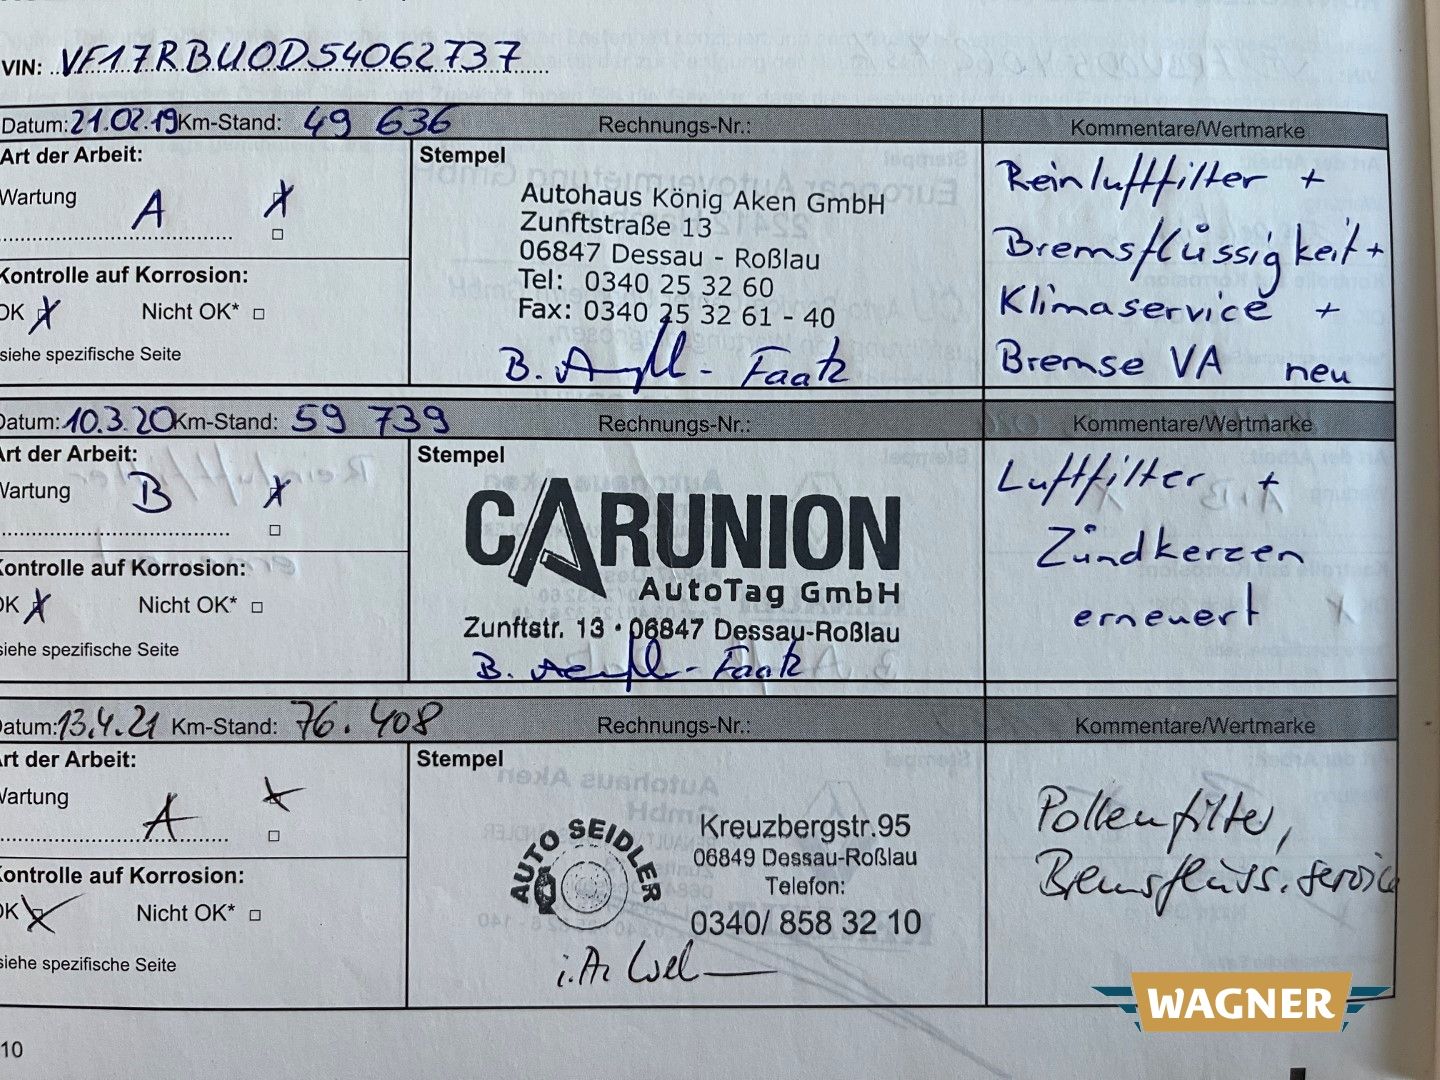 VIN: VF17RBUOD54062737
Datum: 21.02.19 Km-Stand: 49 636 Rechnungs-Nr.: Kommentare/Wertmarke
Art der Arbeit:
Wartung A X
Kontrolle auf Korrosion:
OK X Nicht OK*
siehe spezifische Seite
Stempel
Autohaus König Aken GmbH
Zunftstraße 13
06847 Dessau - Roßlau
Tel: 0340 25 32 60
Fax: 0340 25 32 61 - 40
B. - Faatz
Reinluftfilter +
Bremsflüssigkeit +
Klimaservice +
Bremse VA neu
Datum: 10.3.20 Km-Stand: 59 739 Rechnungs-Nr.: Kommentare/Wertmarke
Art der Arbeit:
Wartung B X
Kontrolle auf Korrosion:
OK X Nicht OK*
siehe spezifische Seite
Stempel
CARUNION
AutoTag GmbH
Zunftstr. 13 · 06847 Dessau-Roßlau
B. - Faatz
Luftfilter +
Zündkerzen
erneuert
Datum: 13.4.21 Km-Stand: 76.408 Rechnungs-Nr.: Kommentare/Wertmarke
Art der Arbeit:
Wartung A X
Kontrolle auf Korrosion:
OK X Nicht OK*
siehe spezifische Seite
Stempel
AUTO SEIDLER
Kreuzbergstr.95
06849 Dessau-Roßlau
Telefon:
0340/ 858 32 10
i.A.
Pollenfilter,
Bremsflüss.service
10
WAGNER